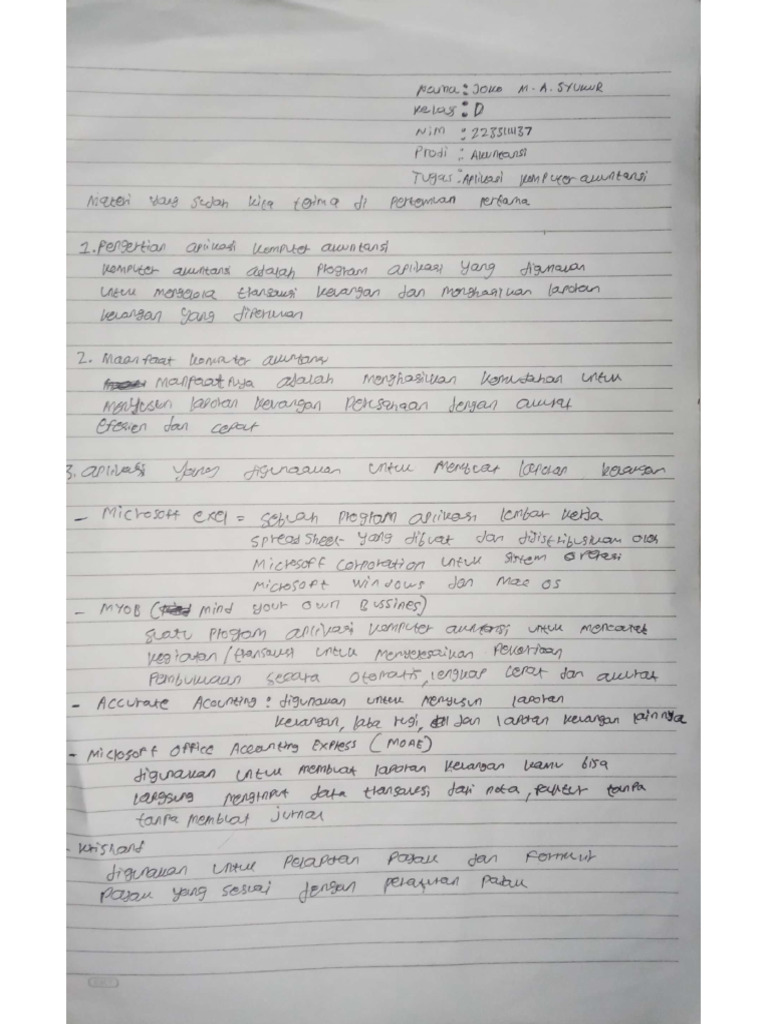 Nama : JOKO M. A. SYUKUR
Kelas : D
Nim : 223511137
Prodi : Akuntansi
Tugas : Aplikasi komputer akuntansi
Materi yang sudah kita terima di pertemuan pertama
1. Pengertian aplikasi komputer akuntansi
komputer akuntansi adalah program aplikasi yang digunakan
untuk mengelola transaksi keuangan dan menghasilkan laporan
keuangan yang diperlukan
2. Maanfaat komputer akuntansi
Manfaatnya adalah menghasilkan kemudahan untuk
menyusun laporan keuangan perusahaan dengan akurat
efesien dan cepat
3. aplikasi yang digunakan untuk membuat laporan keuangan
- Microsoft exel = sebuah program aplikasi lembar kerja
spreadsheet yang dibuat dan didistribusikan oleh
Microsoft corporation untuk sistem
Microsoft windows dan Mac OS
- MYOB (mind your own Bussines)
suatu program aplikasi komputer akuntansi untuk mencatat
kegiatan / transaksi untuk menyelesaikan pekerjaan
Pembukuan secara otomatis, lengkap cepat dan akurat
- Accurate Acounting : digunakan untuk menyusun laporan
keuangan, laba rugi, dan laporan keuangan lainnya
- Microsoft Office Accounting Express (MOAE)
digunakan untuk membuat laporan keuangan kamu bisa
langsung menginput data transaksi dari nota, faktur tanpa
tanpa membuat jurnal
- Krishand
digunakan untuk pelaporan pajak dan formulir
pajak yang sesuai dengan peraturan pajak